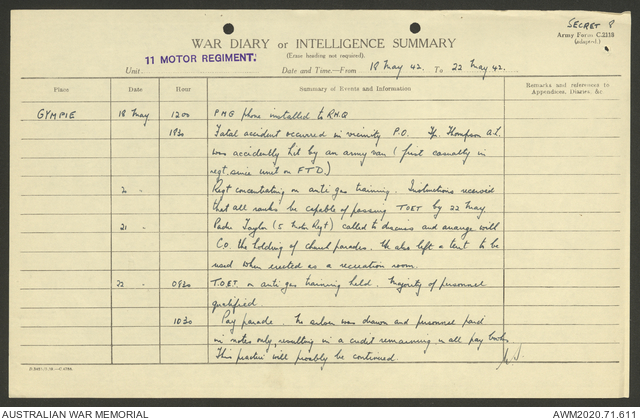 SECRET
Army Form C.2118
(adapt—1.)
WAR DIARY or INTELLIGENCE SUMMARY
(Erase heading not required).
Unit 11 MOTOR REGIMENT. Date and Time:—From 18 May 42. To 22 May 42.
Place Date Hour Summary of Events and Information Remarks and references to
Appendices, Diaries, &c
GYMPIE 18 May 1200 PMG phone installed to RHQ
1930 Fatal accident occurred in vicinity P.O. Tpr. Thompson A.L.
was accidently hit by an army van (first casualty in
regt. since unit on FTD.)
20 " Regt concentrating on anti gas training. Instructions received
that all ranks be capable of passing TOET by 22 May
21 " Padre Taylor (5 Motor Regt) called to discuss and arrange with
CO. the holding of church parades. He also left a tent to be
used when erected as a recreation room.
22 " 0930 T.O.E.T. on anti gas training held. Majority of personnel
qualified
1030 Pay parade. No silver was drawn and personnel paid
in notes only, resulting in a credit remaining in all pay books
This practice will possibly be continued.
AUSTRALIAN WAR MEMORIAL AWM2020.71.611